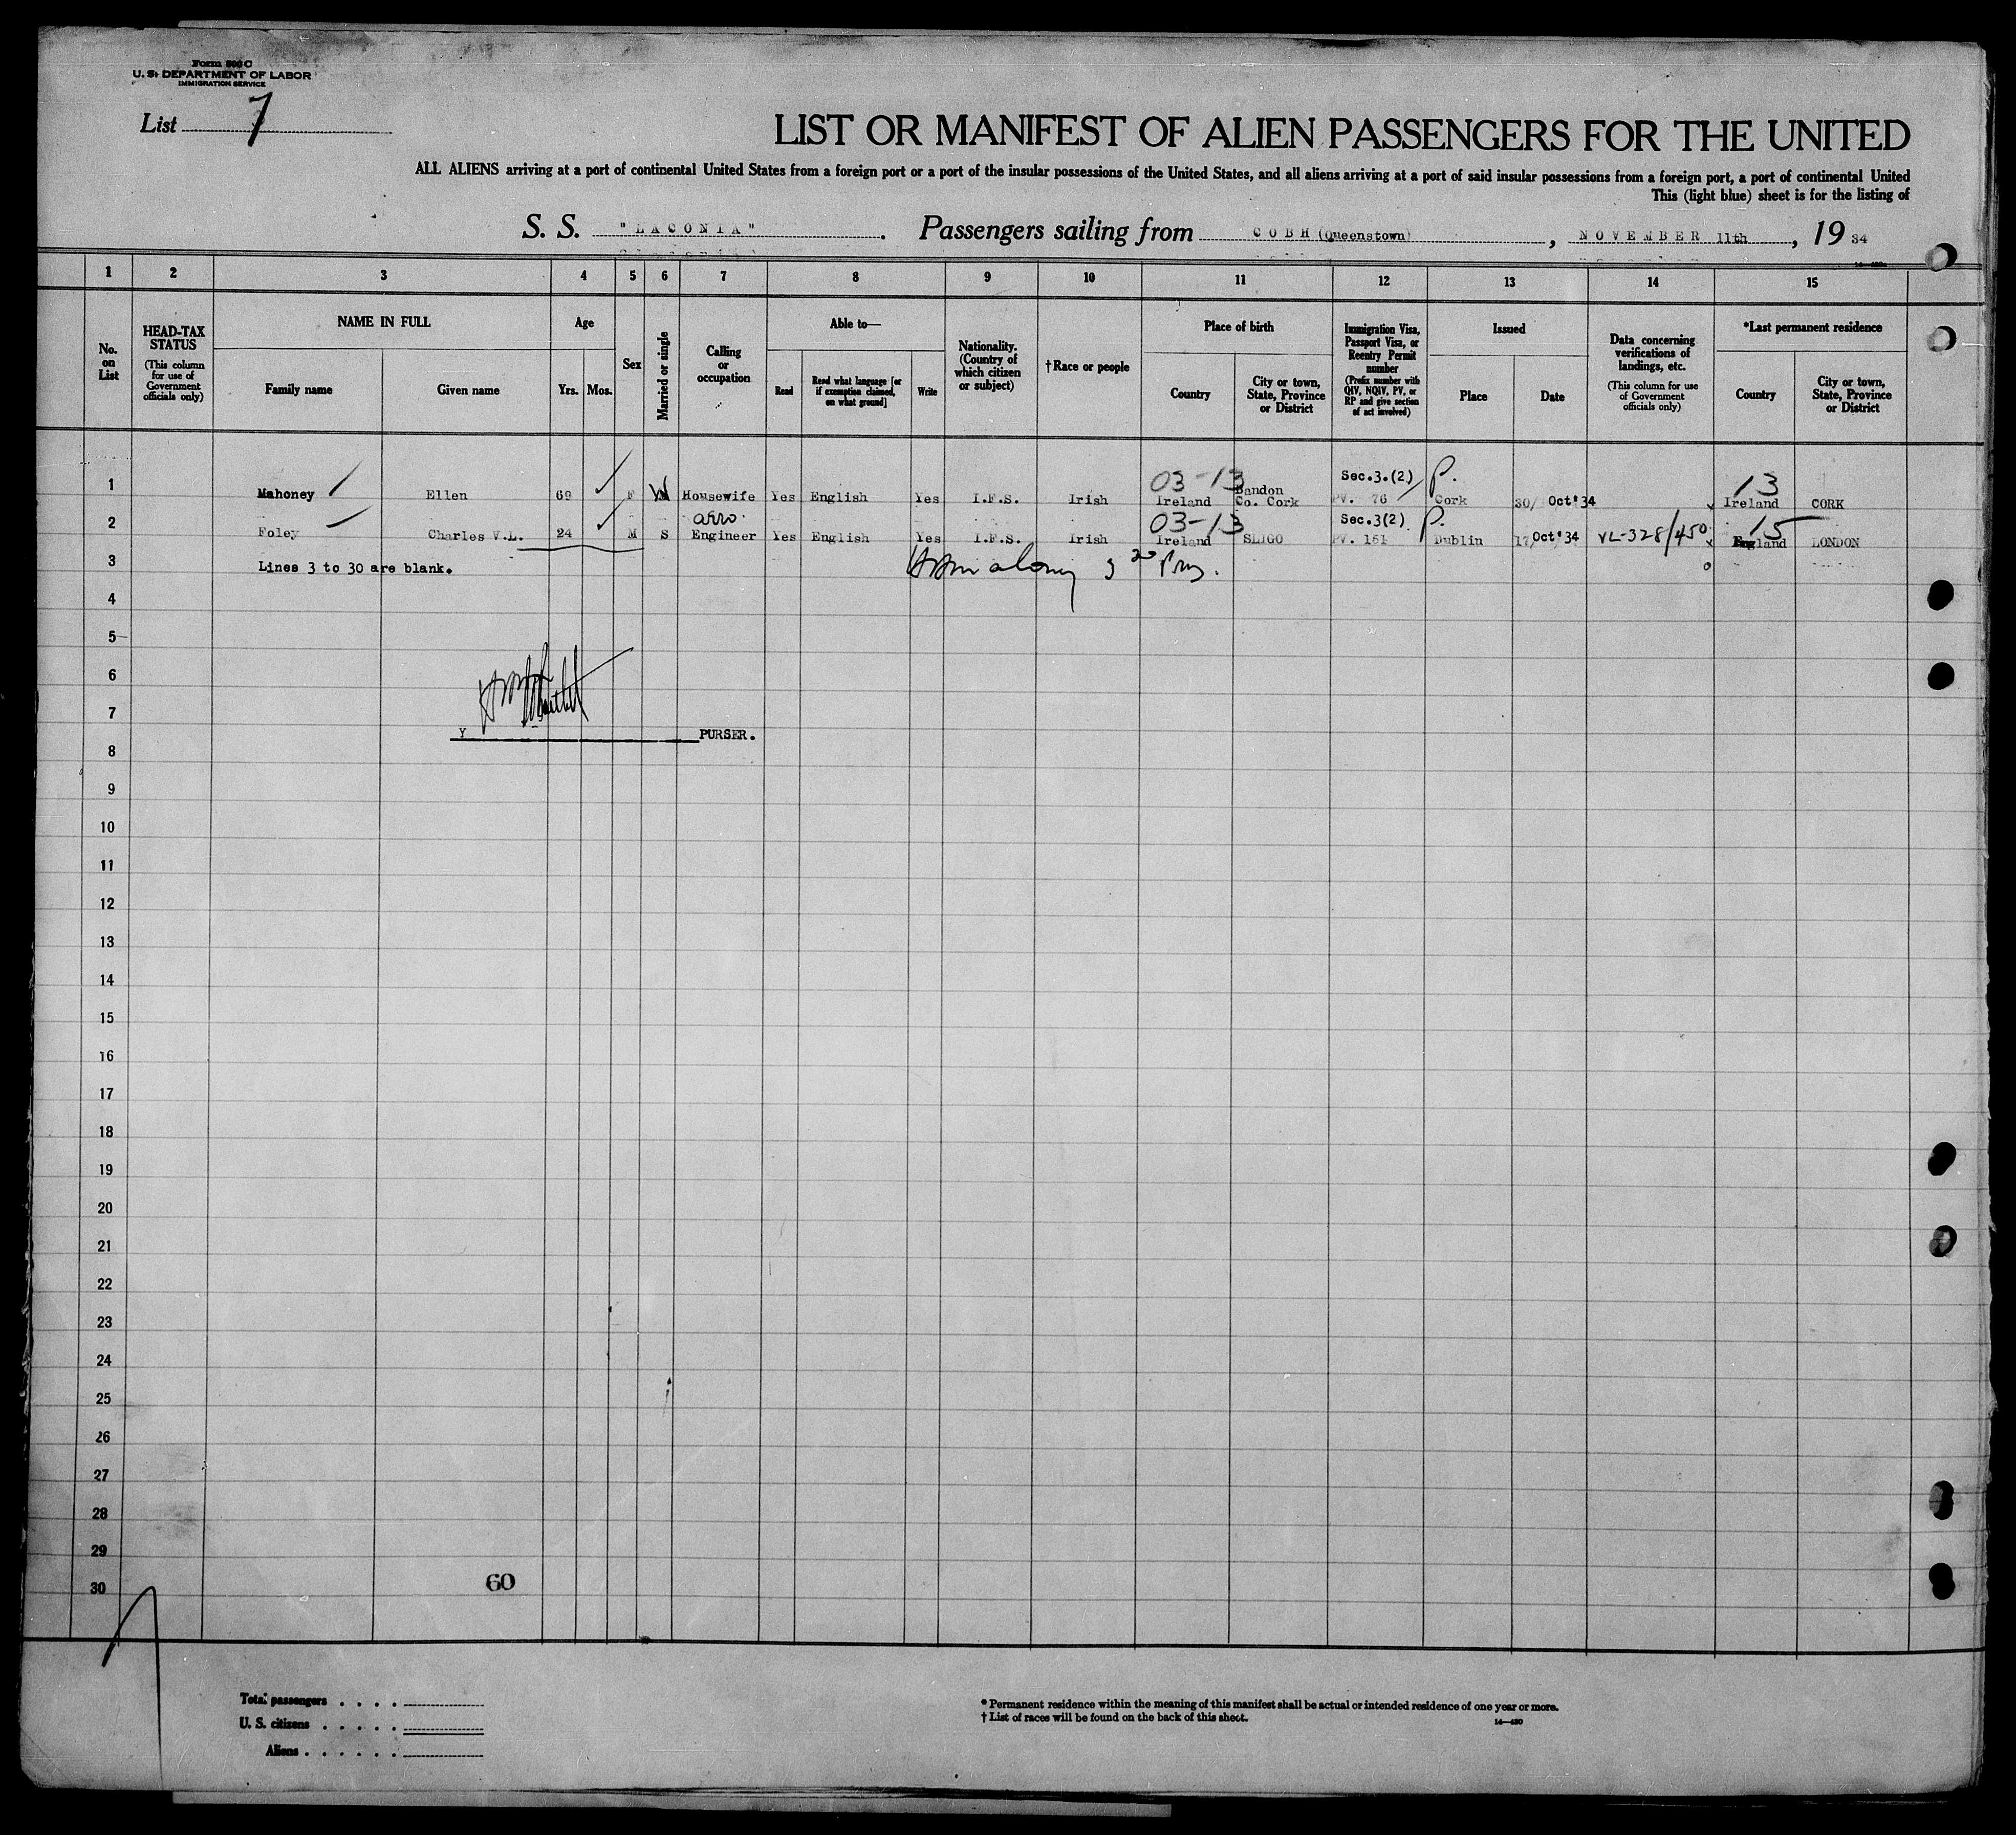 Form 500 C
U. S. DEPARTMENT OF LABOR
IMMIGRATION SERVICE
List 7
LIST OR MANIFEST OF ALIEN PASSENGERS FOR THE UNITED
ALL ALIENS arriving at a port of continental United States from a foreign port or a port of the insular possessions of the United States, and all aliens arriving at a port of said insular possessions from a foreign port, a port of continental United
This (light blue) sheet is for the listing of
S. S. "LACONIA". Passengers sailing from COBH (Queenstown), NOVEMBER 11th, 19 34
1 2 3 4 5 6 7 8 9 10 11 12 13 14 15
No. on List
HEAD-TAX STATUS (This column for use of Government officials only)
NAME IN FULL
Family name
Given name
Age
Yrs. Mos.
Sex
Married or single
Calling or occupation
Able to—
Read
Read what language [or if exemption claimed, on what ground]
Write
Nationality. (Country of which citizen or subject)
†Race or people
Place of birth
Country
City or town, State, Province or District
Immigration Visa, Passport Visa, or Reentry Permit number (Prefix number with QIV, NQIV, PV, or RP and give section of act involved)
Issued
Place
Date
Data concerning verifications of landings, etc. (This column for use of Government officials only)
*Last permanent residence
Country
City or town, State, Province or District
03-13 Sec.3.(2) P. 13
1 Mahoney Ellen F W Housewife Yes English Yes I.F.S. Irish Ireland Bandon Co. Cork PV. 76 Cork 30/ Oct'34 Ireland CORK
03-13 Sec.3(2) P. 15
2 Foley Charles V.L. 24 M S Engineer Yes English Yes I.F.S. Irish Ireland SLIGO PV. 151 Dublin 17/Oct'34 VL-328/450 England LONDON
3 Lines 3 to 30 are blank.
4
5
6
7
Y PURSER.
8
9
10
11
12
13
14
15
16
17
18
19
20
21
22
23
24
25
26
27
28
29
30
60
Total passengers . . . .
U. S. citizens . . . . .
Aliens . . . . . .
* Permanent residence within the meaning of this manifest shall be actual or intended residence of one year or more.
† List of races will be found on the back of this sheet.
14—430